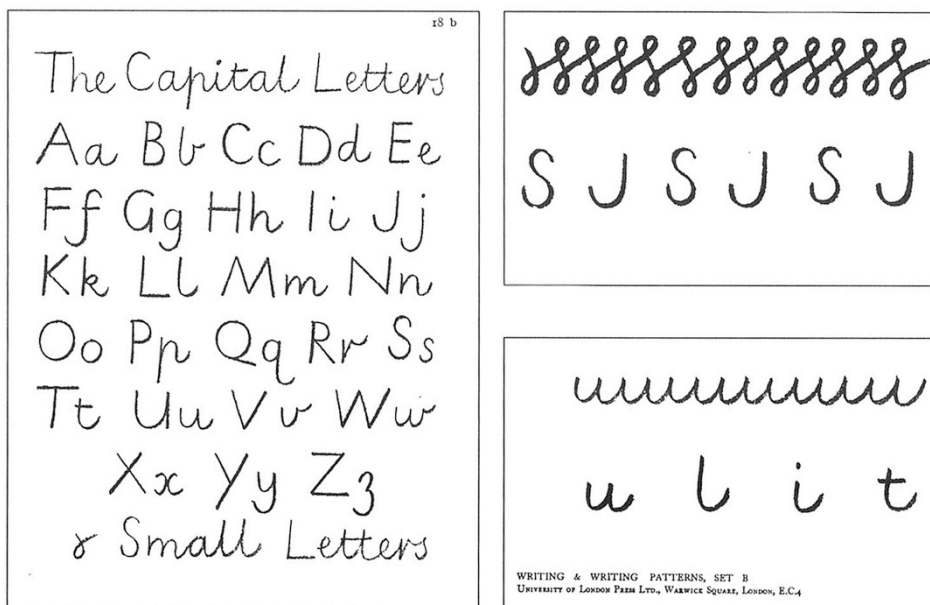 18 b
The Capital Letters
Aa Bb Cc Dd Ee
Ff Gg Hh Ii Jj
Kk Ll Mm Nn
Oo Pp Qq Rr Ss
Tt Uu Vv Ww
Xx Yy Zz
& Small Letters
S J S J S J
u l i t
WRITING & WRITING PATTERNS, SET B
UNIVERSITY OF LONDON PRESS LTD., WARWICK SQUARE, LONDON, E.C.4